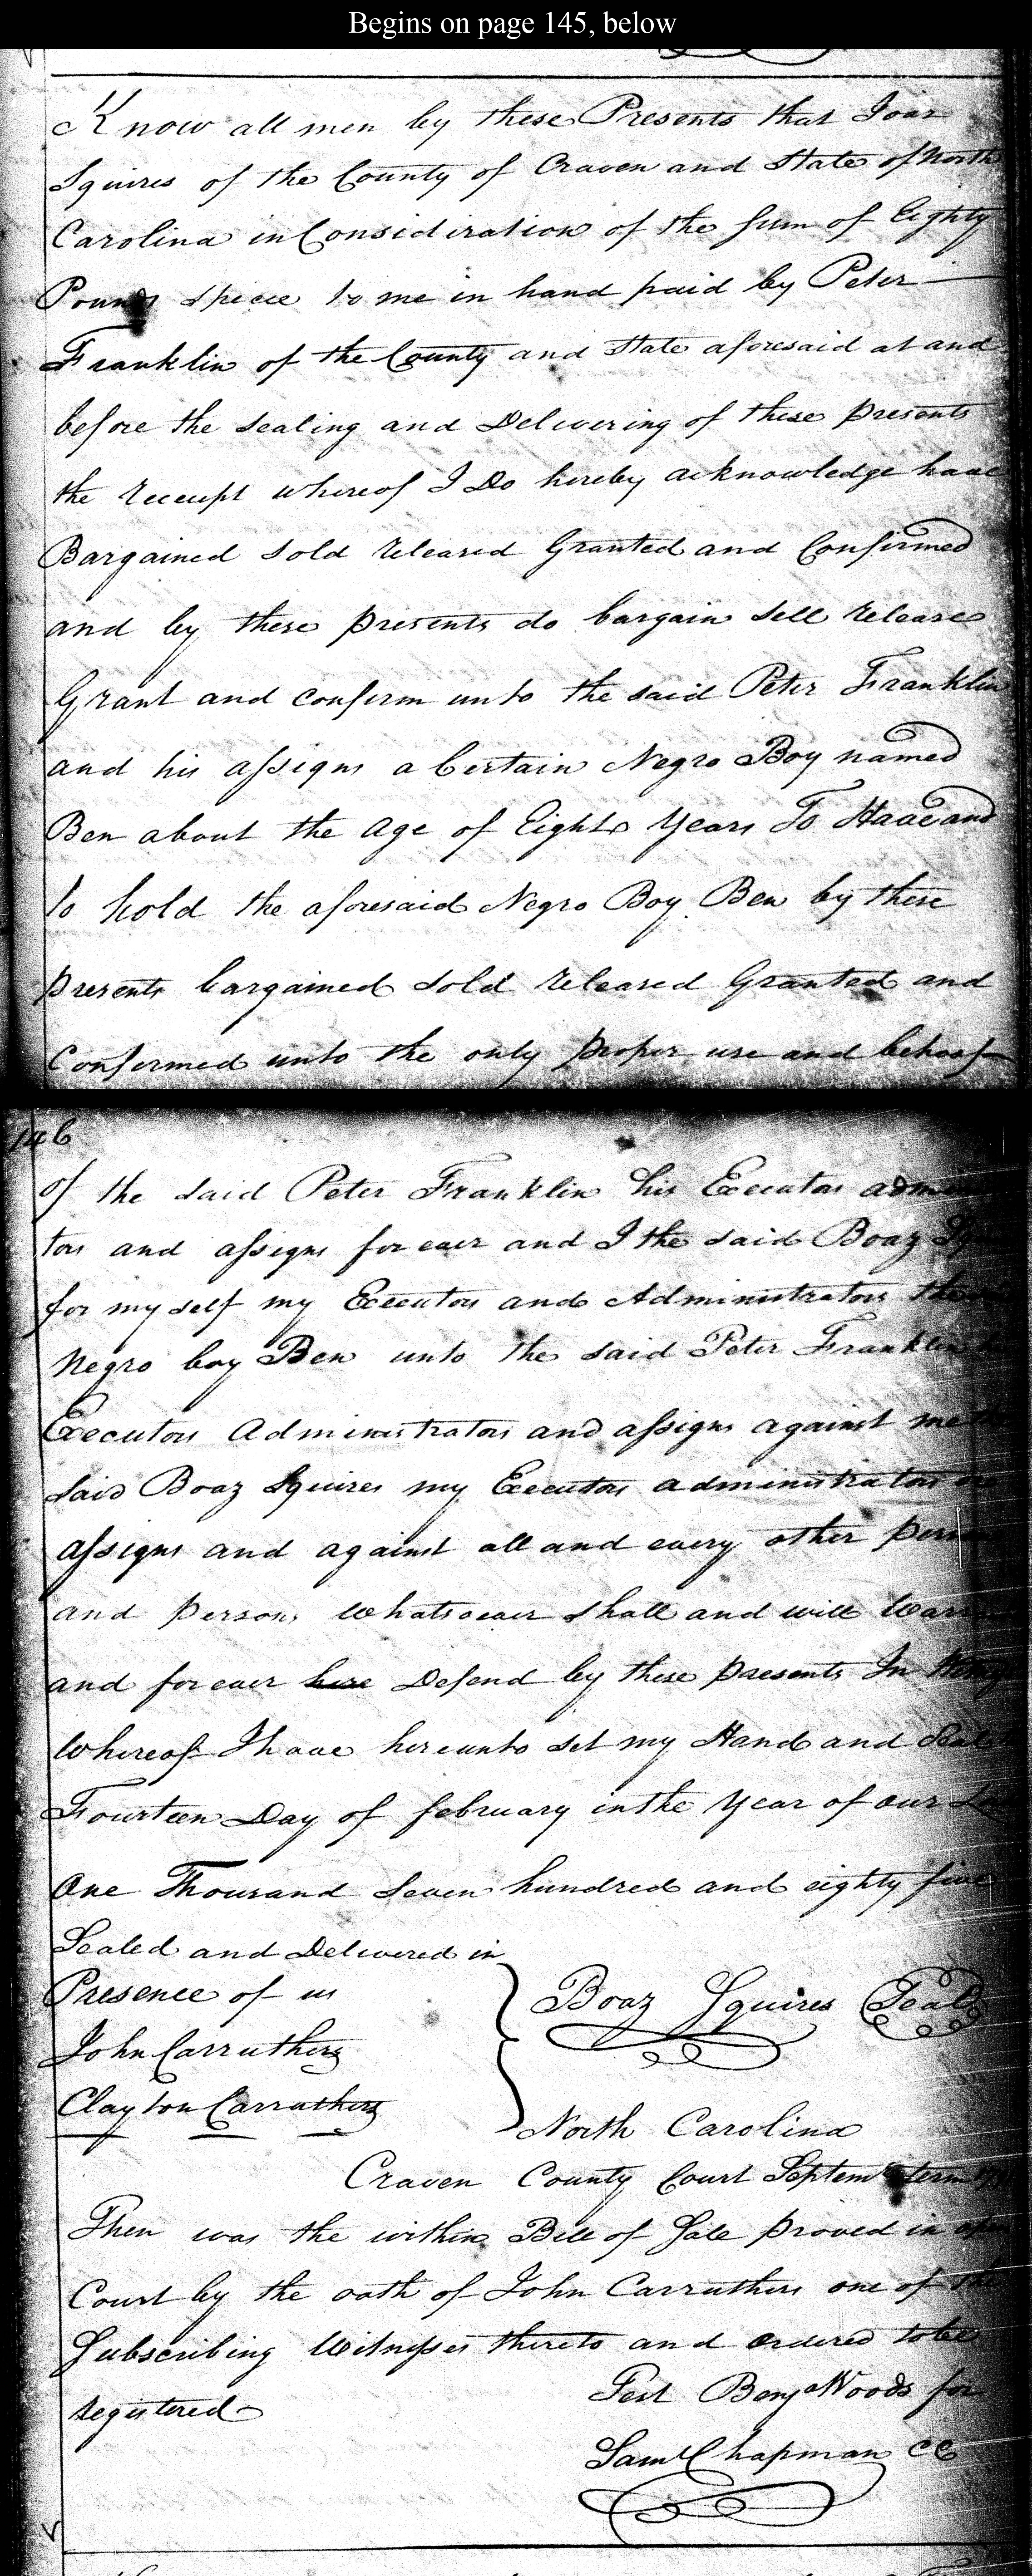 Begins on page 145, below
Know all men by these Presents that Joar
Squires of the County of Craven and State of North
Carolina in Considiration of the sum of Eighty
Pounds Specie to me in hand paid by Peter
Franklin of the County and State aforesaid at and
before the sealing and Delivering of these presents
the receipt whereof I Do hereby acknowledge have
Bargained sold released Granted and Confirmed
and by these presents do bargain sell release
Grant and confirm unto the said Peter Franklin
and his assigns a Certain Negro Boy named
Ben about the age of Eight Years To Have and
to hold the aforesaid Negro Boy Ben by these
presents bargained sold released Granted and
Confermed unto the only proper use and behoof
146
of the said Peter Franklin his Executors
tors and assigns for ever and I the said Boaz
for my self my Executors and Administrators
Negro boy Ben unto the said Peter Franklin
Executors Administrators and assigns against me
said Boaz Squires my Executors administrators
assigns and against all and every other
and persons Whatsoever shall and will
and for ever here Defend by these presents In
Whereof I have hereunto set my Hand and Seal
Fourteen Day of february in the Year of our
One Thousand Seven hundred and eighty five
Sealed and Delivered in
Presence of us
Boaz Squires Seal
John Carruthers
Clayton Carruthers
North Carolina
Craven County Court Septemr term
Then was the within Bill of Sale proved in
Court by the oath of John Carruthers one of
Subscribing Witnesses thereto and ordered to be
registered
Test Benja Woods for
Saml Chapman CC